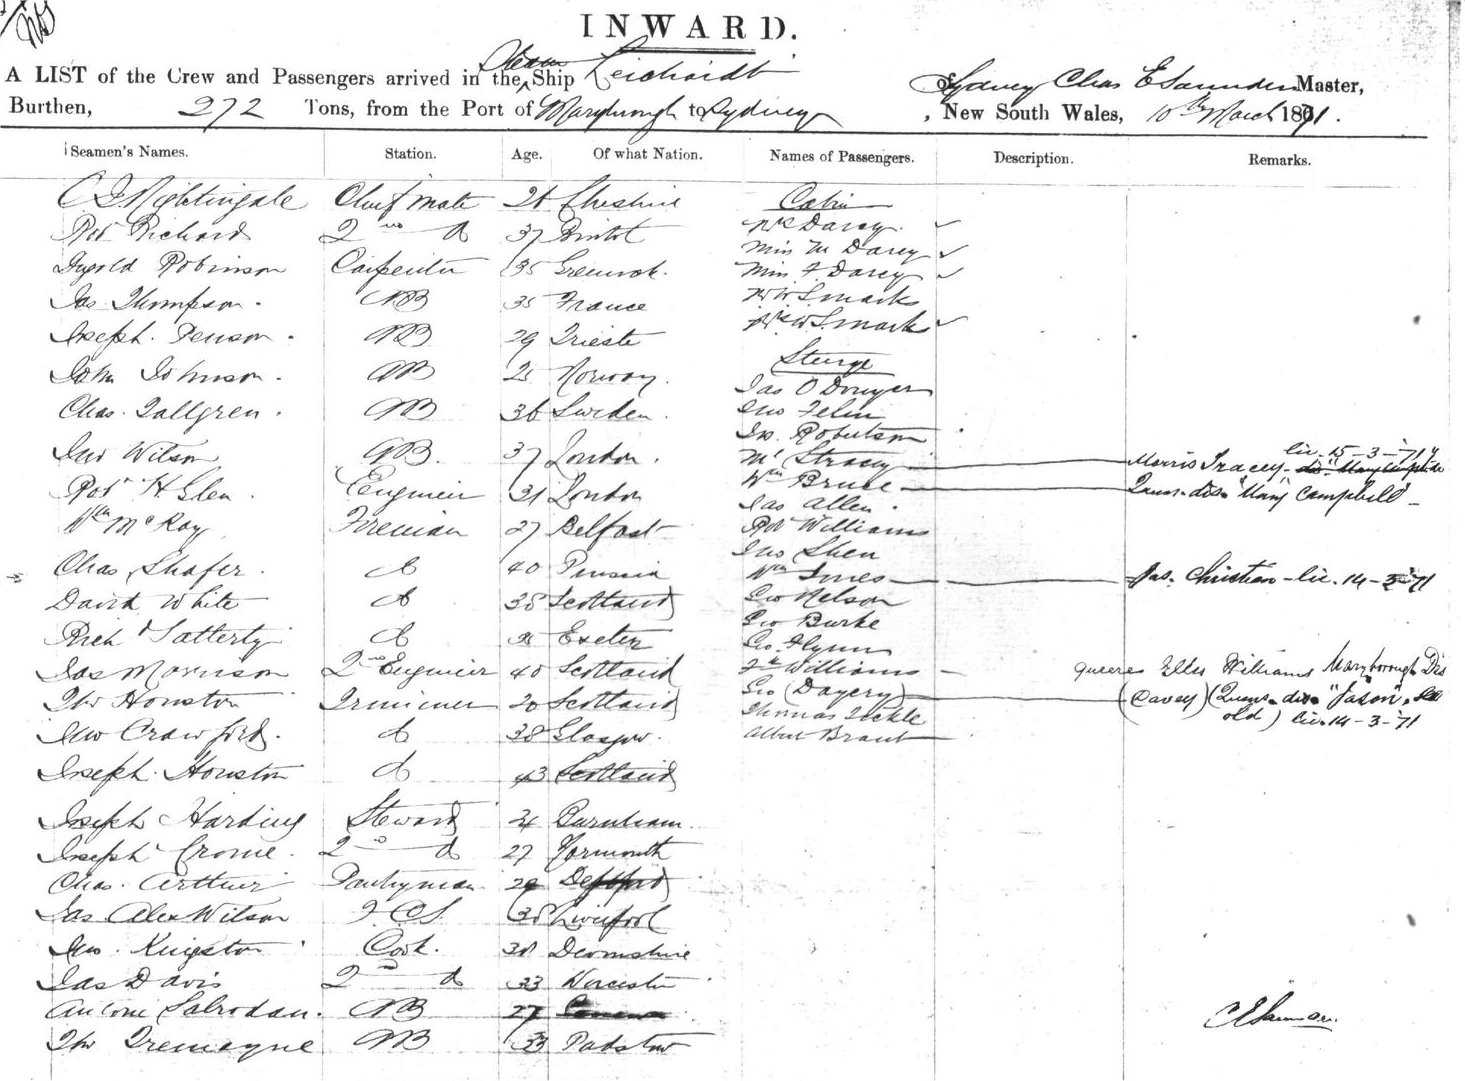 INWARD.
A LIST of the Crew and Passengers arrived in the Steam Ship Leichardt of Sydney Chas E Saunders Master,
Burthen, 272 Tons, from the Port of Maryborough to Sydney, New South Wales, 10th March 1871.
Seamen's Names. Station. Age. Of what Nation. Names of Passengers. Description. Remarks.
Nightingale Chief Mate Cheshire
Robt Richard 2nd do 37 Bristol
Robinson Carpenter 35 Greenock
Jas Thompson. AB 35 France
Joseph AB 29 Trieste
John Johnson. AB 25 Norway.
Chas. Tallgren. AB 36 Sweden.
Jno Wilson AB. 37 London.
Robt H Glen. Engineer 31 London
Wm McKay Fireman 27 Belfast
Chas Shafer. do 40 Prussia
David White do 38 Scotland
Richd do Exeter
Jas Morrison 2nd Engineer 40 Scotland
Thos Houston Trimmer 20 Scotland
Jno Crawford. do 38 Glasgow.
Joseph Houston do 43 Scotland
Joseph Harding Steward Burnham.
Joseph Crome. 2nd do 27 Yarmouth
Chas. Arthur Pantryman 29 Deptford
Jas Alex Wilson F.C.S. 38 Liverpool
Jno. Kingston Cook. 38 Devonshire
Jas Davis 2nd do 33 Worcester
Antone AB 27
Thos Tremayne AB 33 Padstow
Cabin
Mrs Darcy.
Miss M Darcy
Miss F. Darcy
Mr W S. Marks
Mrs W S. Marks
Steerage
Jas O Dwyer
Jno
Jn. Robertson
Mr Stracey Morris Tracey - lic. 15-3-'71
Wm Bruce Quins. dis. "Mary Campbell"
Jas Allen.
Robt Williams
Jno Shea
Wm Innes Jas. Christian - lic. 14-3-'71
Geo Nelson
Geo Burke
Geo. Flynn
Williams queere Williams Maryborough Dis
Geo (Dayery) (Cavey) "Jason". old) lic. 14-3-'71
Thomas Tickle
Albert Braut
C E Saunders.